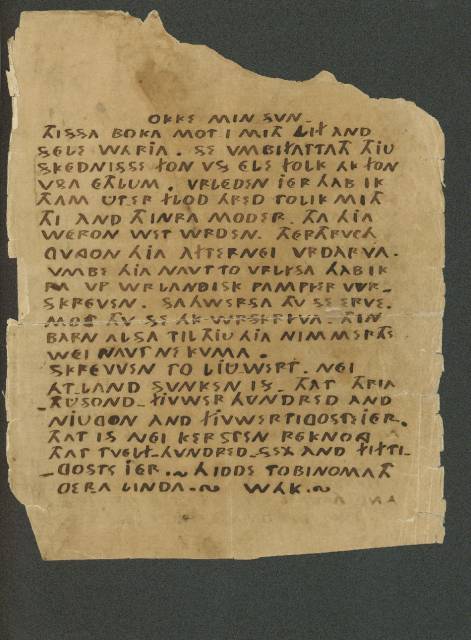 OKKE MIN SVN.
THISSA BOKA MOT I MITH LIF AND
SELE WARIA. SE VMBIFATTATH THIU
SKEDNISSE FON VS ELE FOLK AK FON
VSA ETHLUM. VRLEDEN IER HAB IK
THAM UTER FLOD HRED TOLIK MITH
THI AND THINRA MODER. THA HIA
WERON WET WRDEN. THERTHRVCH
GVNGON HIA AFTERNEI VRDARVA.
VMBE HIA NAVT TO VRLYSA HAB IK
RA VP WRLANDISK PAMPIER WR-
SKREVEN. SAHWERSA THV SE ERVE.
MOT THV SE AK WRSKRIVA. THIN
BARN ALSA TIL THIU HIA NIMMERTHE
WEI NAVT NE KVMA.
SKREVVEN TO LIUWERT. NEI
ATLAND SUNKEN IS. THAT THRIA
THUSOND FIUWER HVNDRED AND
NIUGON AND FIUWERTIGOSTE IER.
THAT IS NEI KERSTEN REKNONG
THAT TVELF HVNDRED SEX AND FIFTI-
GOSTE IER. ~ HIDDE TOBINOMATH
OERA LINDA. ~ WAK. ~